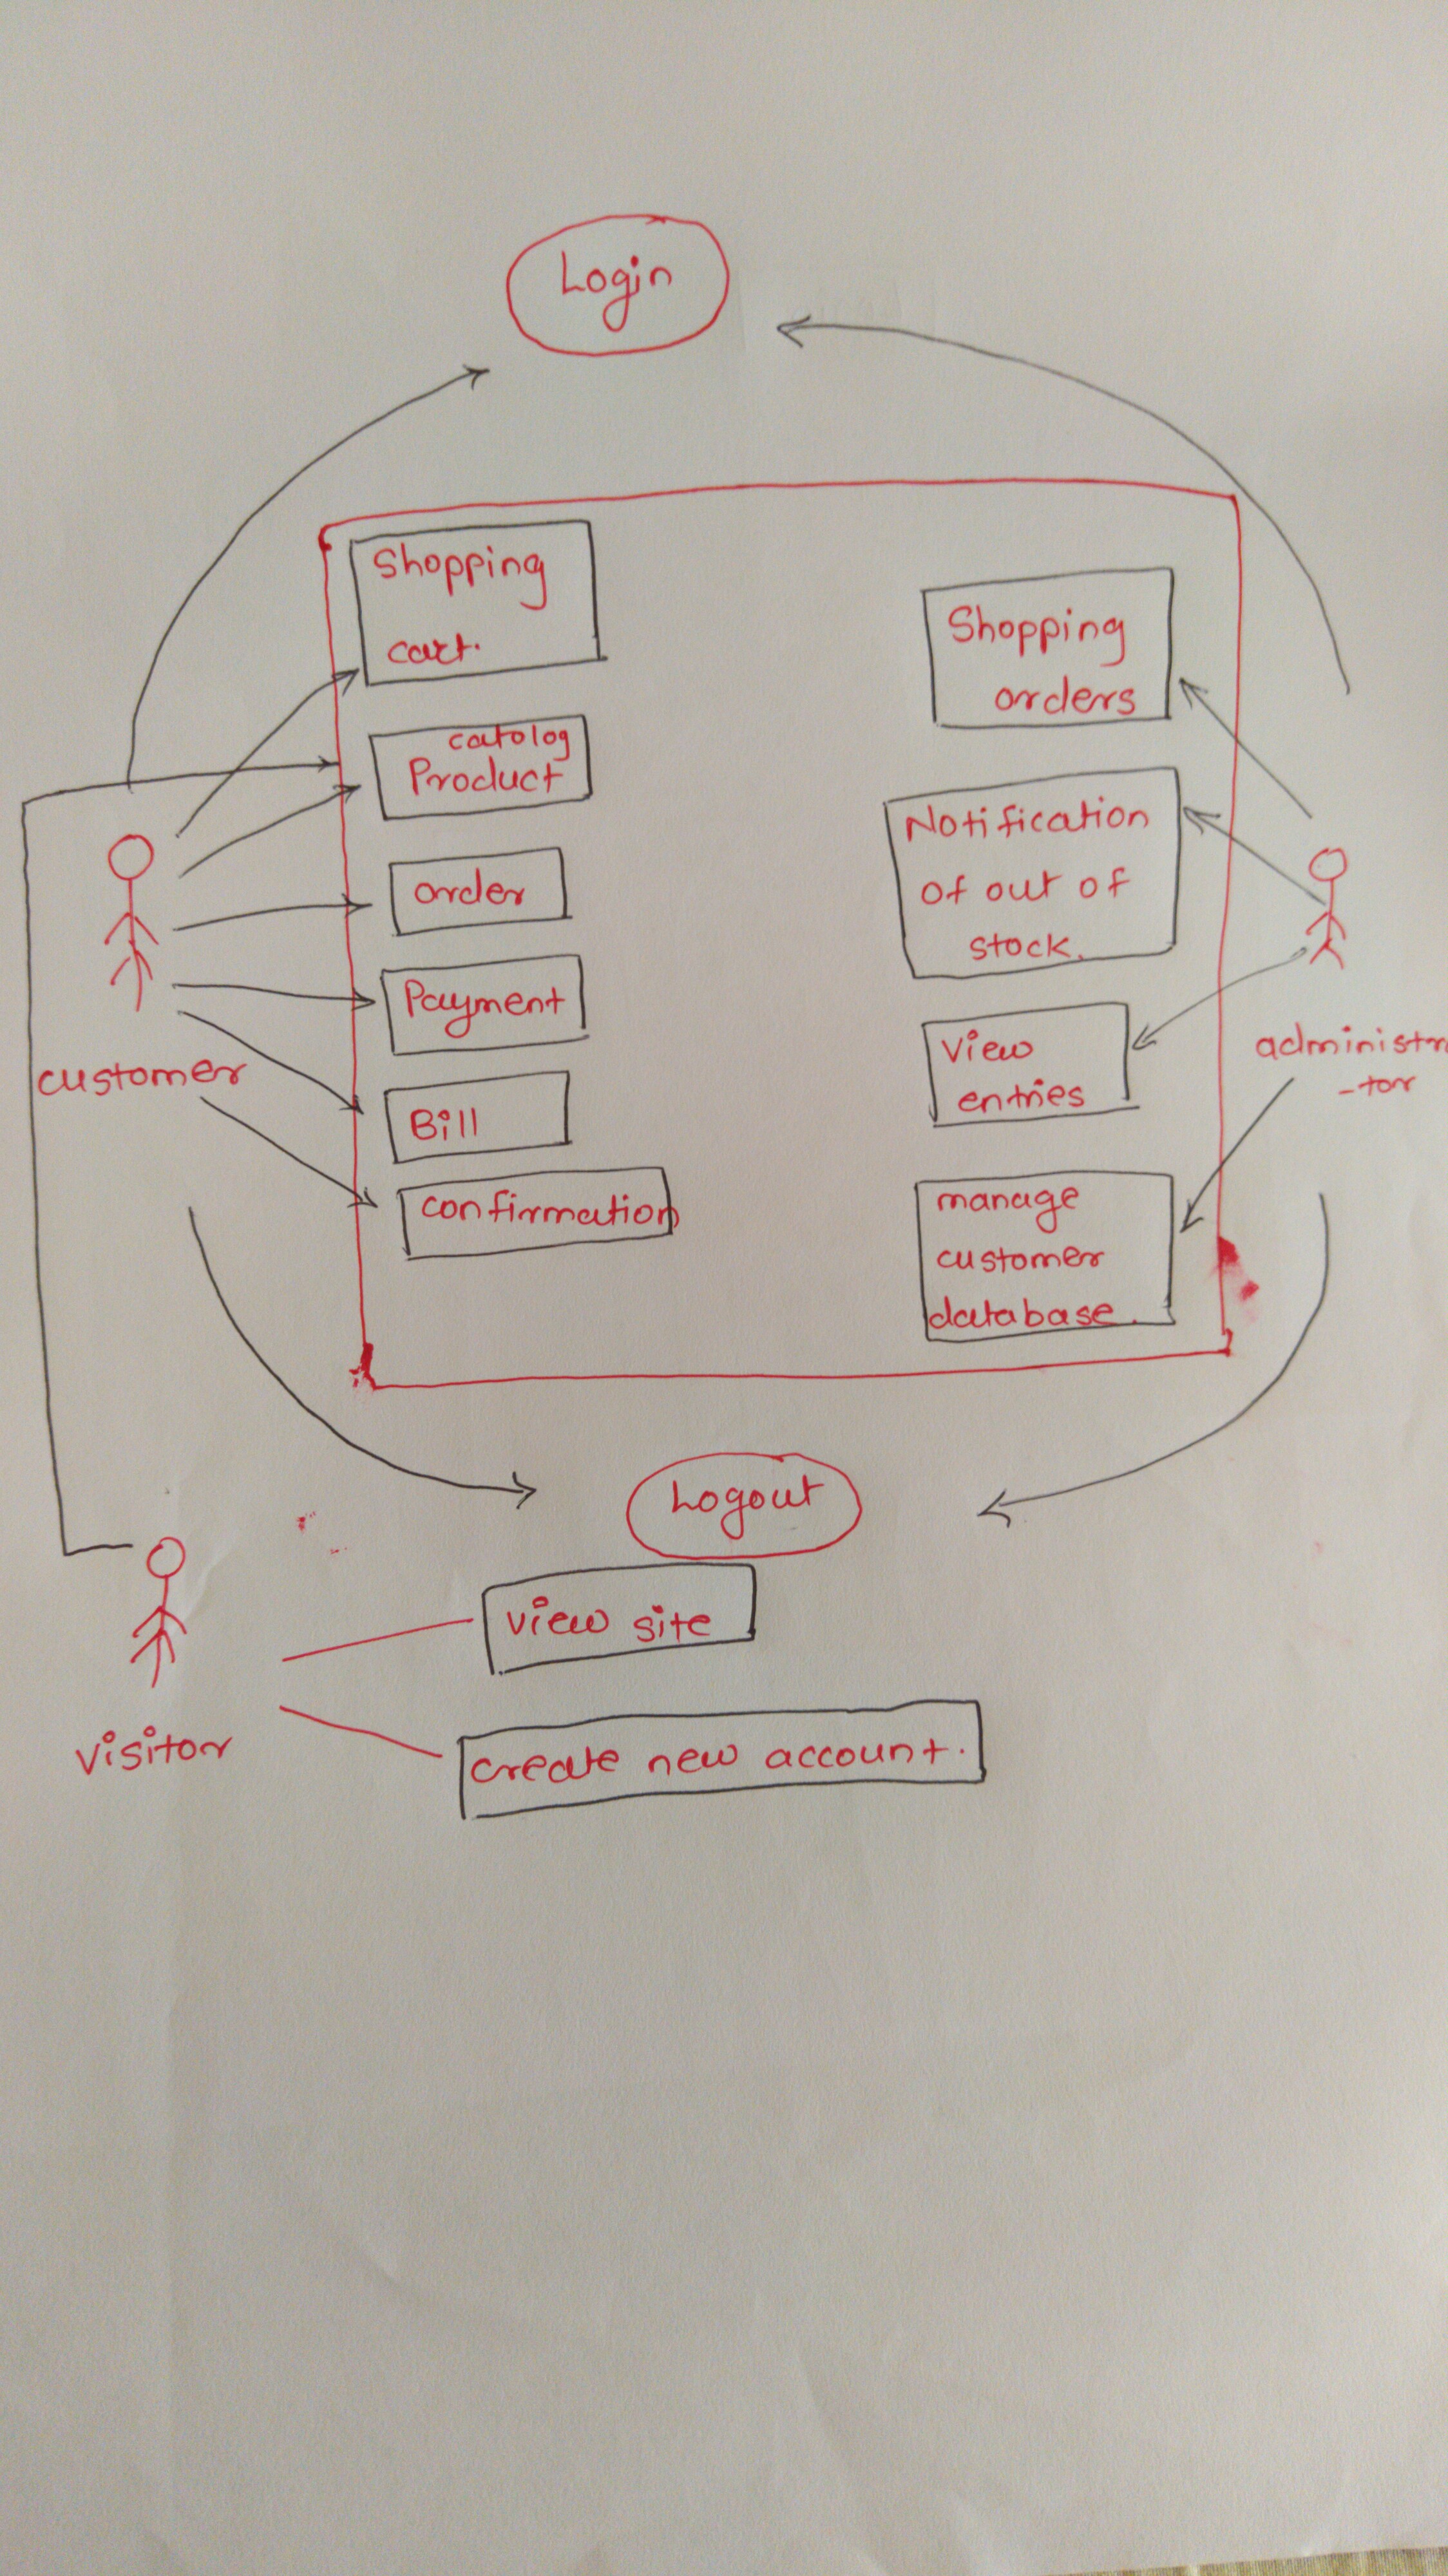 Login
Shopping
cart.
catolog
Product
order
Payment
Bill
confirmation
customer
Shopping
orders
Notification
of out of
stock.
View
entries
manage
customer
database.
administr
-tor
Logout
view site
create new account.
visitor